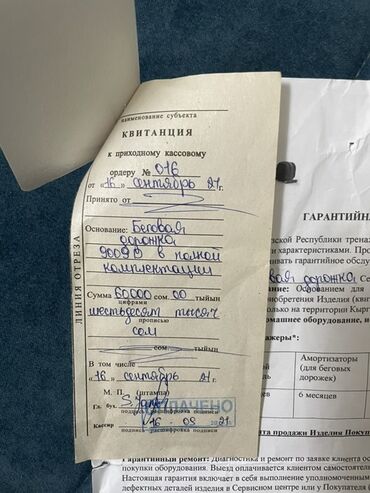 наименование субъекта
КВИТАНЦИЯ
к приходному кассовому
ордеру № 016
от «16» сентябрь 21 г.
Принято от
Основание: Беговая
дорожка
в полной
комплектации
Сумма 60000 сом. 00 тыйын
цифрами
шестьдесят тысяч
прописью
сом
сом тыйын
В том числе
«16» сентябрь 21 г.
М. П. (штампа)
Гл. бух.
подпись расшифровка подписи
ОПЛАЧЕНО
Кассир 16 - 09 2021
подпись расшифровка подписи
ЛИНИЯ ОТРЕЗА
ГАРАНТИЙН
еской Республики трена
характеристиками. Прои
вать гарантийное обслу
вая дорожка Се
ание: Основанием для
обретения Изделия (кви
только на территории Кырг
омашнее оборудование, и
ажеры*:
Амортизаторы
(для беговых
дорожек)
6 месяцев
та продажи Изделия Покуп
Гарантийный ремонт: Диагностика и ремонт по заявке клиента ос
покупки оборудования. Выезд оплачивается клиентом самостоятел
Настоящая гарантия включает в себя выполнение уполномоченны
дефектных деталей изделия в Сервисном центре или у Покупателя (